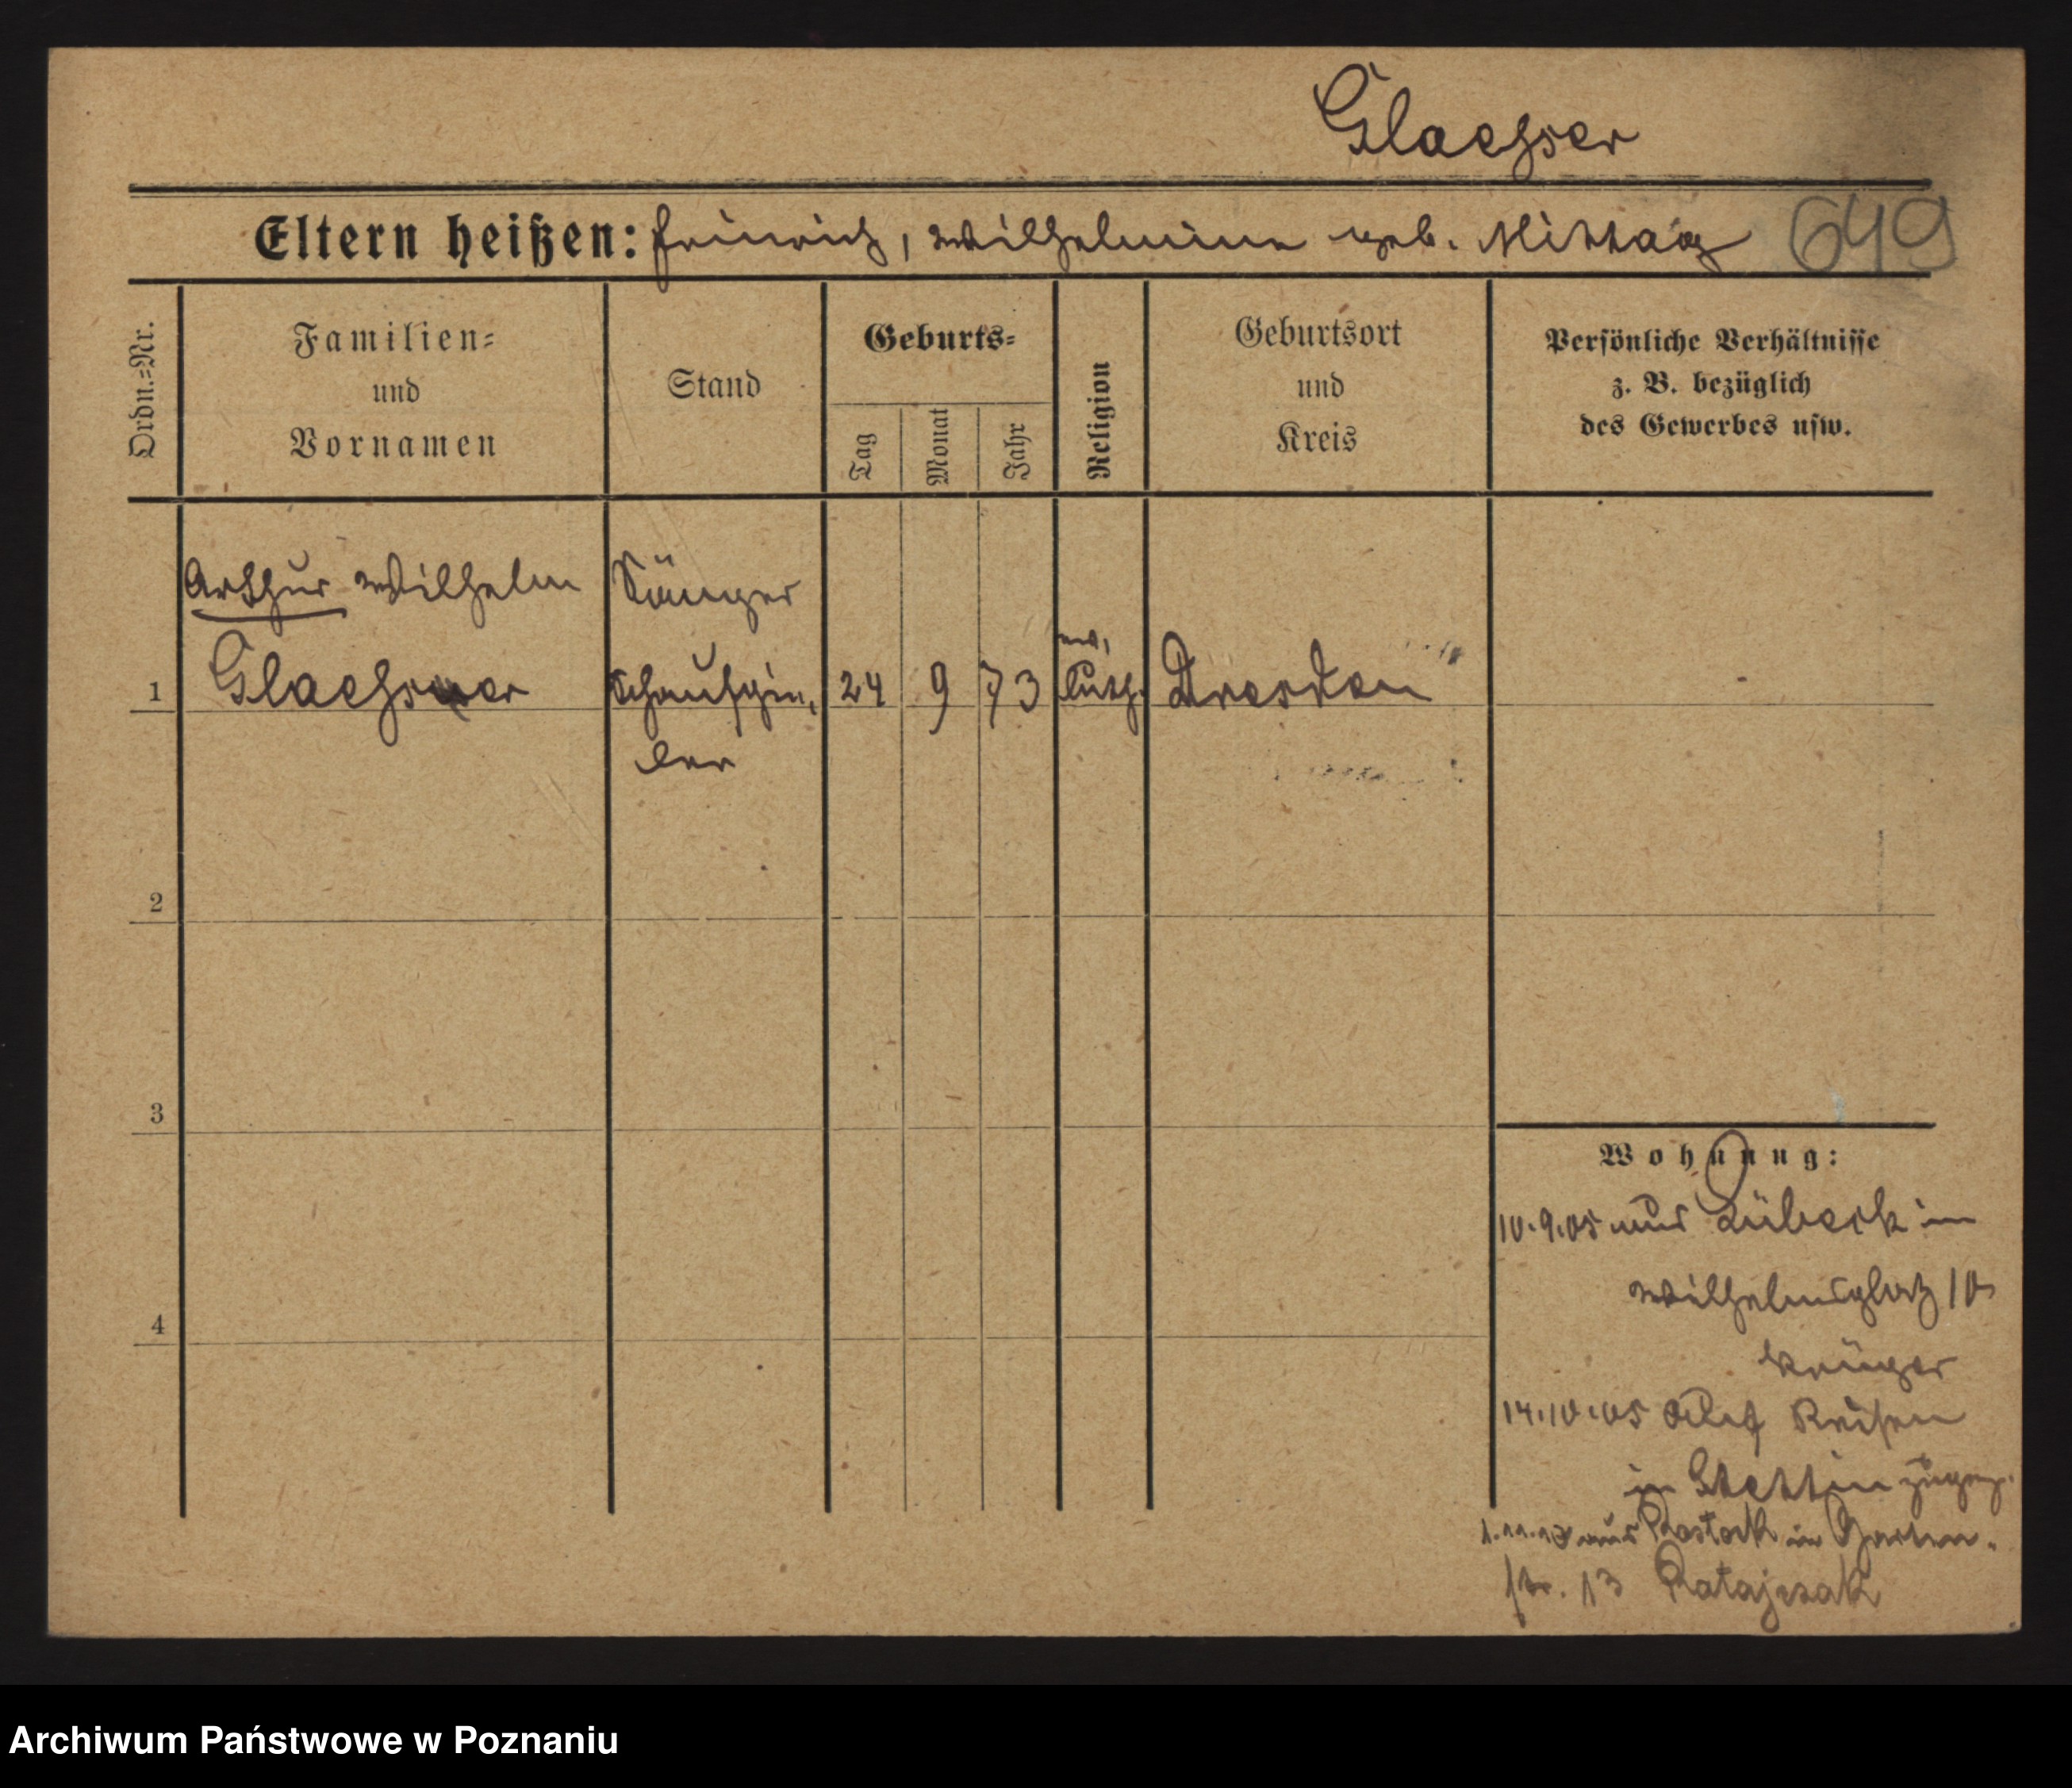 Glaesser
Eltern heißen: Heinrich, Wilhelmine geb. Mittag 649
Ordn.-Nr.
Familien-
und
Vornamen
Stand
Geburts-
Tag
Monat
Jahr
Religion
Geburtsort
und
Kreis
Persönliche Verhältnisse
z. B. bezüglich
des Gewerbes usw.
Arthur Wilhelm Sänger
ev.
1 Glaesser Schauspie- 24 9 73 luth. Dresden
ler
2
3
4
Wohnung:
10.9.05 aus Lübeck in
Wilhelmsplatz 10
Krüger
14.10.05 Auf Reisen
in Stettin zugez.
aus Rostock in Garten-
str. 13 Ratajczak
Archiwum Państwowe w Poznaniu